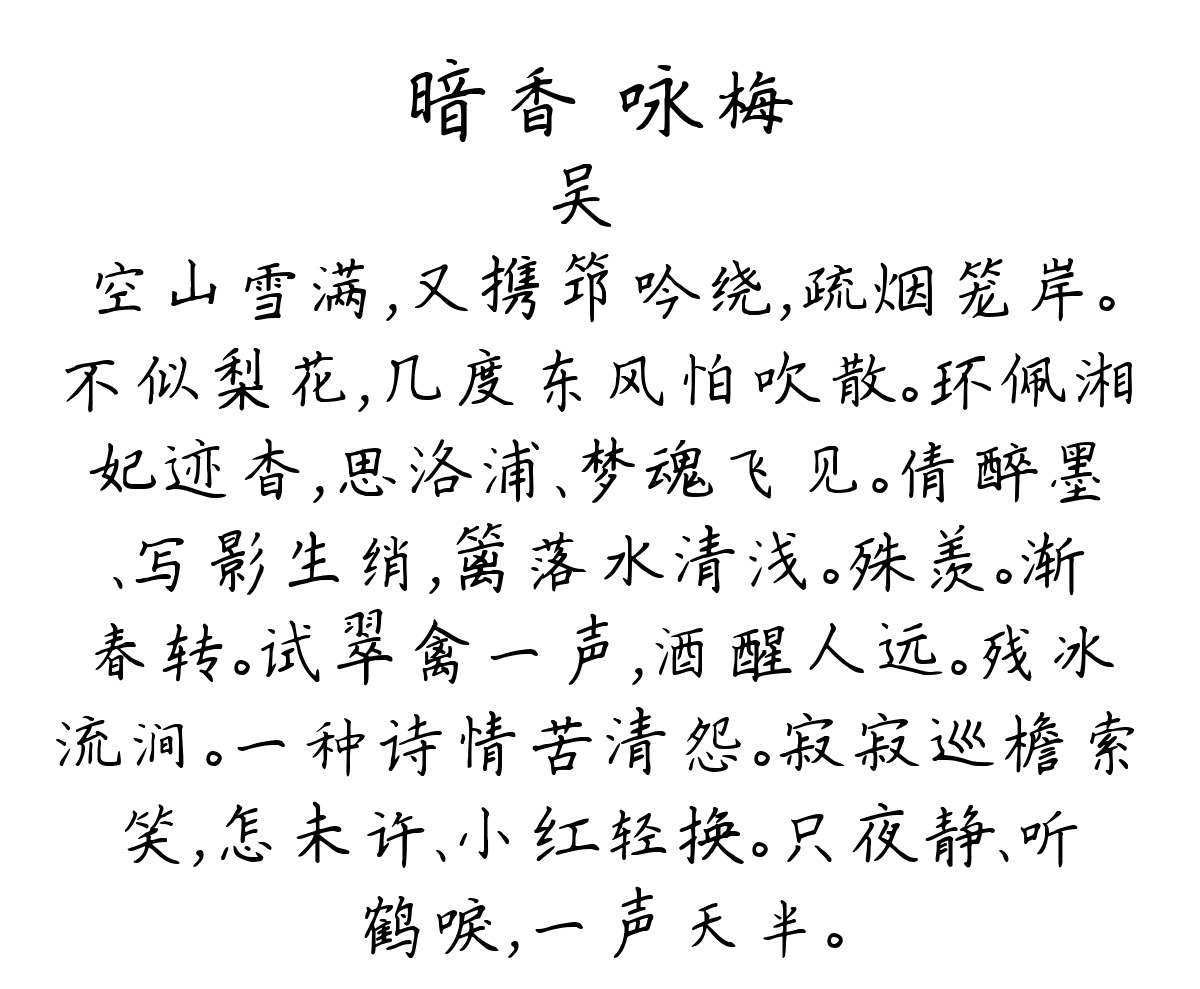 暗香 咏梅
吴
空山雪满,又携筇吟绕,疏烟笼岸。
不似梨花,几度东风怕吹散。环佩湘
妃迹杳,思洛浦、梦魂飞见。倩醉墨
、写影生绡,篱落水清浅。殊羡。渐
春转。试翠禽一声,酒醒人远。残冰
流涧。一种诗情苦清怨。寂寂巡檐索
笑,怎未许、小红轻换。只夜静、听
鹤唳,一声天半。